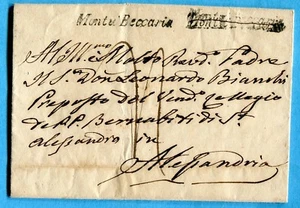 Montù Beccaria
Al M.mo Molto Revd. Padre
Il Sr. Don Leonardo Bianchi
Preposto del Vend. Collegio
de PP. Bernabiti di St.
Alessandro in
Alessandria